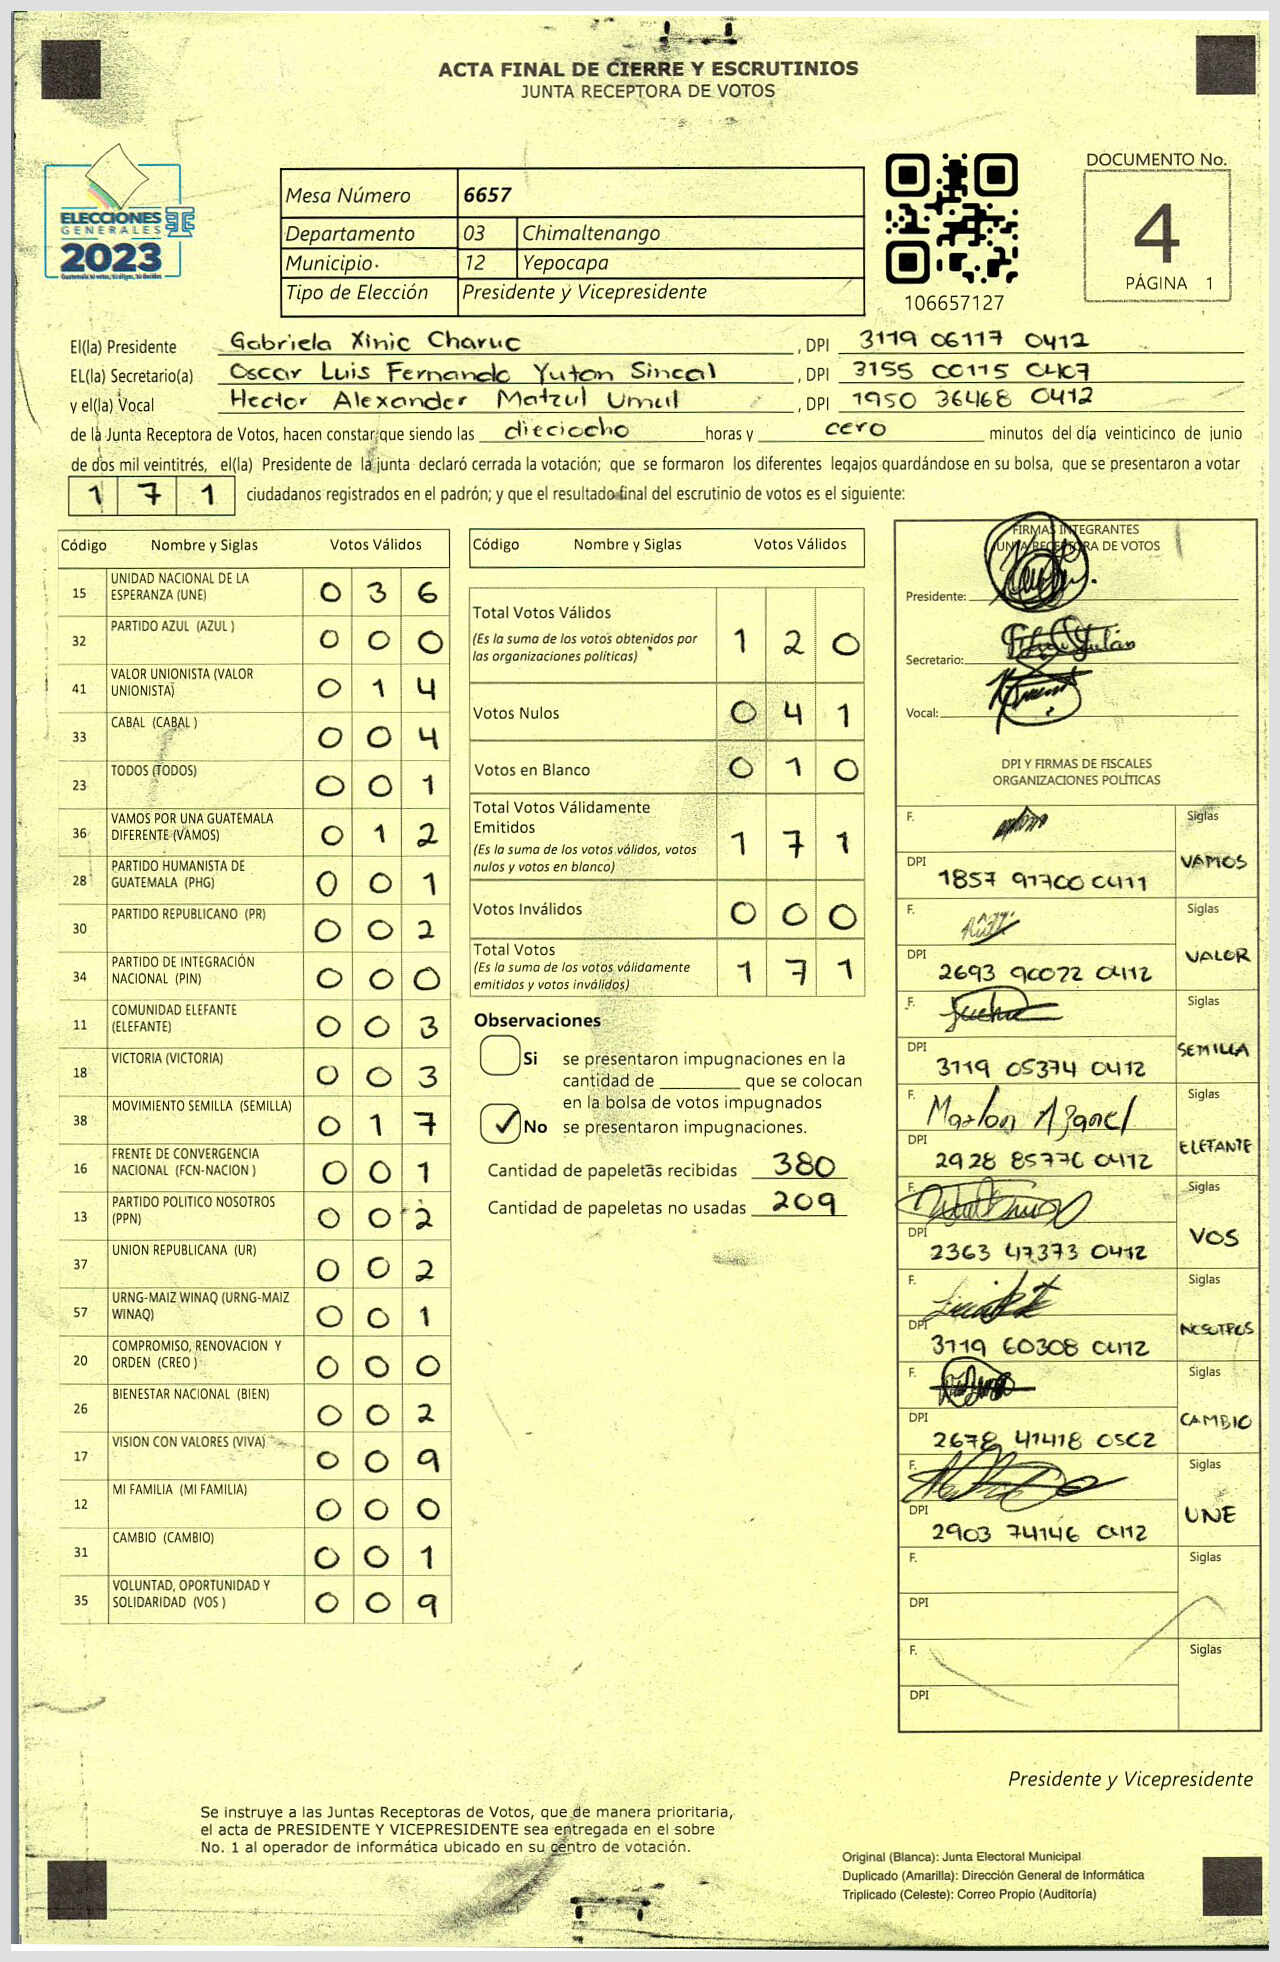 ACTA FINAL DE CIERRE Y ESCRUTINIOS
JUNTA RECEPTORA DE VOTOS
ELECCIONES
GENERALES
2023
Mesa Número 6657
Departamento 03 Chimaltenango
Municipio 12 Yepocapa
Tipo de Elección Presidente y Vicepresidente
106657127
DOCUMENTO No.
4
PÁGINA 1
El(la) Presidente Gabriela Xinic Charuc, DPI 3119 06117 0412
EL(la) Secretario(a) Oscar Luis Fernando Yuton Sincal, DPI 3155 00115 0407
y el(la) Vocal Hector Alexander Matzul Umul, DPI 1950 36468 0412
de la Junta Receptora de Votos, hacen constar que siendo las dieciocho horas y cero minutos del día veinticinco de junio
de dos mil veintitrés, el(la) Presidente de la junta declaró cerrada la votación; que se formaron los diferentes legajos guardándose en su bolsa, que se presentaron a votar
171 ciudadanos registrados en el padrón; y que el resultado final del escrutinio de votos es el siguiente:
Código Nombre y Siglas Votos Válidos
15 UNIDAD NACIONAL DE LA ESPERANZA (UNE) 036
32 PARTIDO AZUL (AZUL ) 000
41 VALOR UNIONISTA (VALOR UNIONISTA) 014
33 CABAL (CABAL ) 004
23 TODOS (TODOS) 001
36 VAMOS POR UNA GUATEMALA DIFERENTE (VAMOS) 012
28 PARTIDO HUMANISTA DE GUATEMALA (PHG) 001
30 PARTIDO REPUBLICANO (PR) 002
34 PARTIDO DE INTEGRACIÓN NACIONAL (PIN) 000
11 COMUNIDAD ELEFANTE (ELEFANTE) 003
18 VICTORIA (VICTORIA) 003
38 MOVIMIENTO SEMILLA (SEMILLA) 017
16 FRENTE DE CONVERGENCIA NACIONAL (FCN-NACION ) 001
13 PARTIDO POLITICO NOSOTROS (PPN) 002
37 UNION REPUBLICANA (UR) 002
57 URNG-MAIZ WINAQ (URNG-MAIZ WINAQ) 001
20 COMPROMISO, RENOVACION Y ORDEN (CREO ) 000
26 BIENESTAR NACIONAL (BIEN) 002
17 VISION CON VALORES (VIVA) 009
12 MI FAMILIA (MI FAMILIA) 000
31 CAMBIO (CAMBIO) 001
35 VOLUNTAD, OPORTUNIDAD Y SOLIDARIDAD (VOS ) 009
Código Nombre y Siglas Votos Válidos
Total Votos Válidos 120
(Es la suma de los votos obtenidos por
las organizaciones políticas)
Votos Nulos 041
Votos en Blanco 010
Total Votos Válidamente
Emitidos 171
(Es la suma de los votos válidos, votos
nulos y votos en blanco)
Votos Inválidos 000
Total Votos 171
(Es la suma de los votos válidamente
emitidos y votos inválidos)
Observaciones
Si se presentaron impugnaciones en la
cantidad de ________ que se colocan
en la bolsa de votos impugnados
✓ No se presentaron impugnaciones.
Cantidad de papeletas recibidas 380
Cantidad de papeletas no usadas 209
FIRMAS INTEGRANTES
JUNTA RECEPTORA DE VOTOS
Presidente:
Secretario:
Vocal:
DPI Y FIRMAS DE FISCALES
ORGANIZACIONES POLÍTICAS
F. Siglas
DPI 1857 91700 0411 VAMOS
F. Siglas
DPI 2693 90072 0412 VALOR
F. Siglas
DPI 3119 05374 0412 SEMILLA
F. Siglas
DPI 2928 85776 0412 ELEFANTE
F. Siglas
DPI 2363 47373 0412 VOS
F. Siglas
DPI 3119 60308 0412 NOSOTROS
F. Siglas
DPI 2678 41418 0502 CAMBIO
F. Siglas
DPI 2903 74146 0412 UNE
F. Siglas
DPI
F. Siglas
DPI
Presidente y Vicepresidente
Se instruye a las Juntas Receptoras de Votos, que de manera prioritaria,
el acta de PRESIDENTE Y VICEPRESIDENTE sea entregada en el sobre
No. 1 al operador de informática ubicado en su centro de votación.
Original (Blanca): Junta Electoral Municipal
Duplicado (Amarilla): Dirección General de Informática
Triplicado (Celeste): Correo Propio (Auditoría)